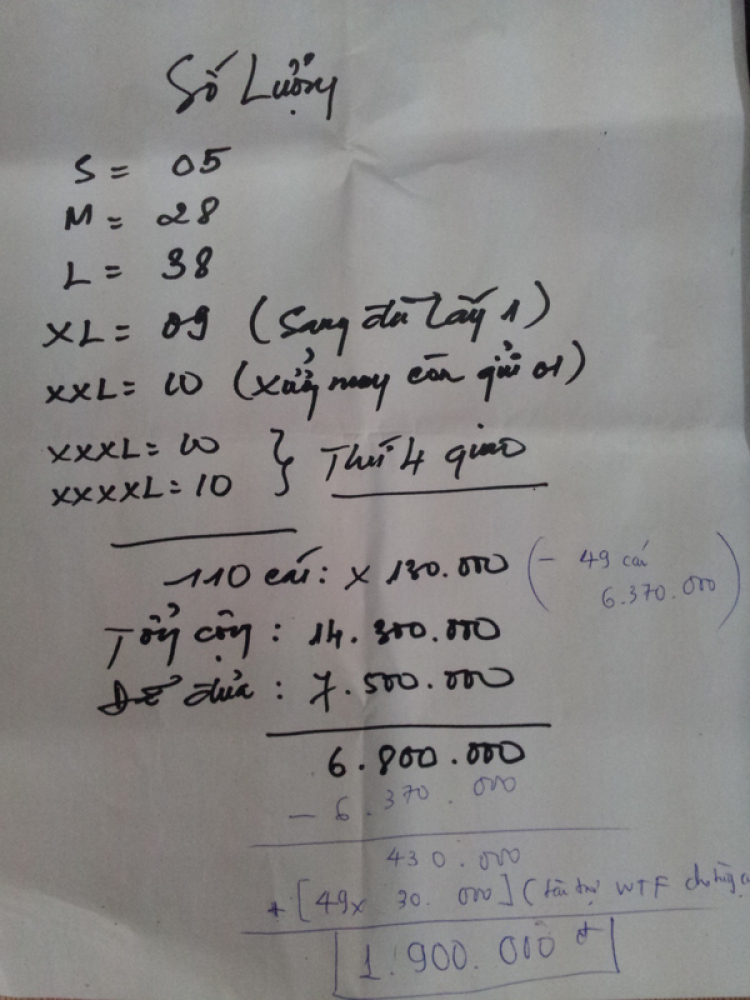 Số Lượng
S = 05
M = 28
L = 38
XL = 09 (Sang đã lấy 1)
XXL = 10 (xưởng may còn giữ 01)
XXXL = 10
XXXXL = 10 } Thứ 4 giao
110 cái : x 130.000 (- 49 cái
6.370.000)
Tổng cộng : 14.300.000
đưa : 7.500.000
6.800.000
- 6.370.000
430.000
+ [49x 30.000] (tài trợ WTF
1.900.000 đ